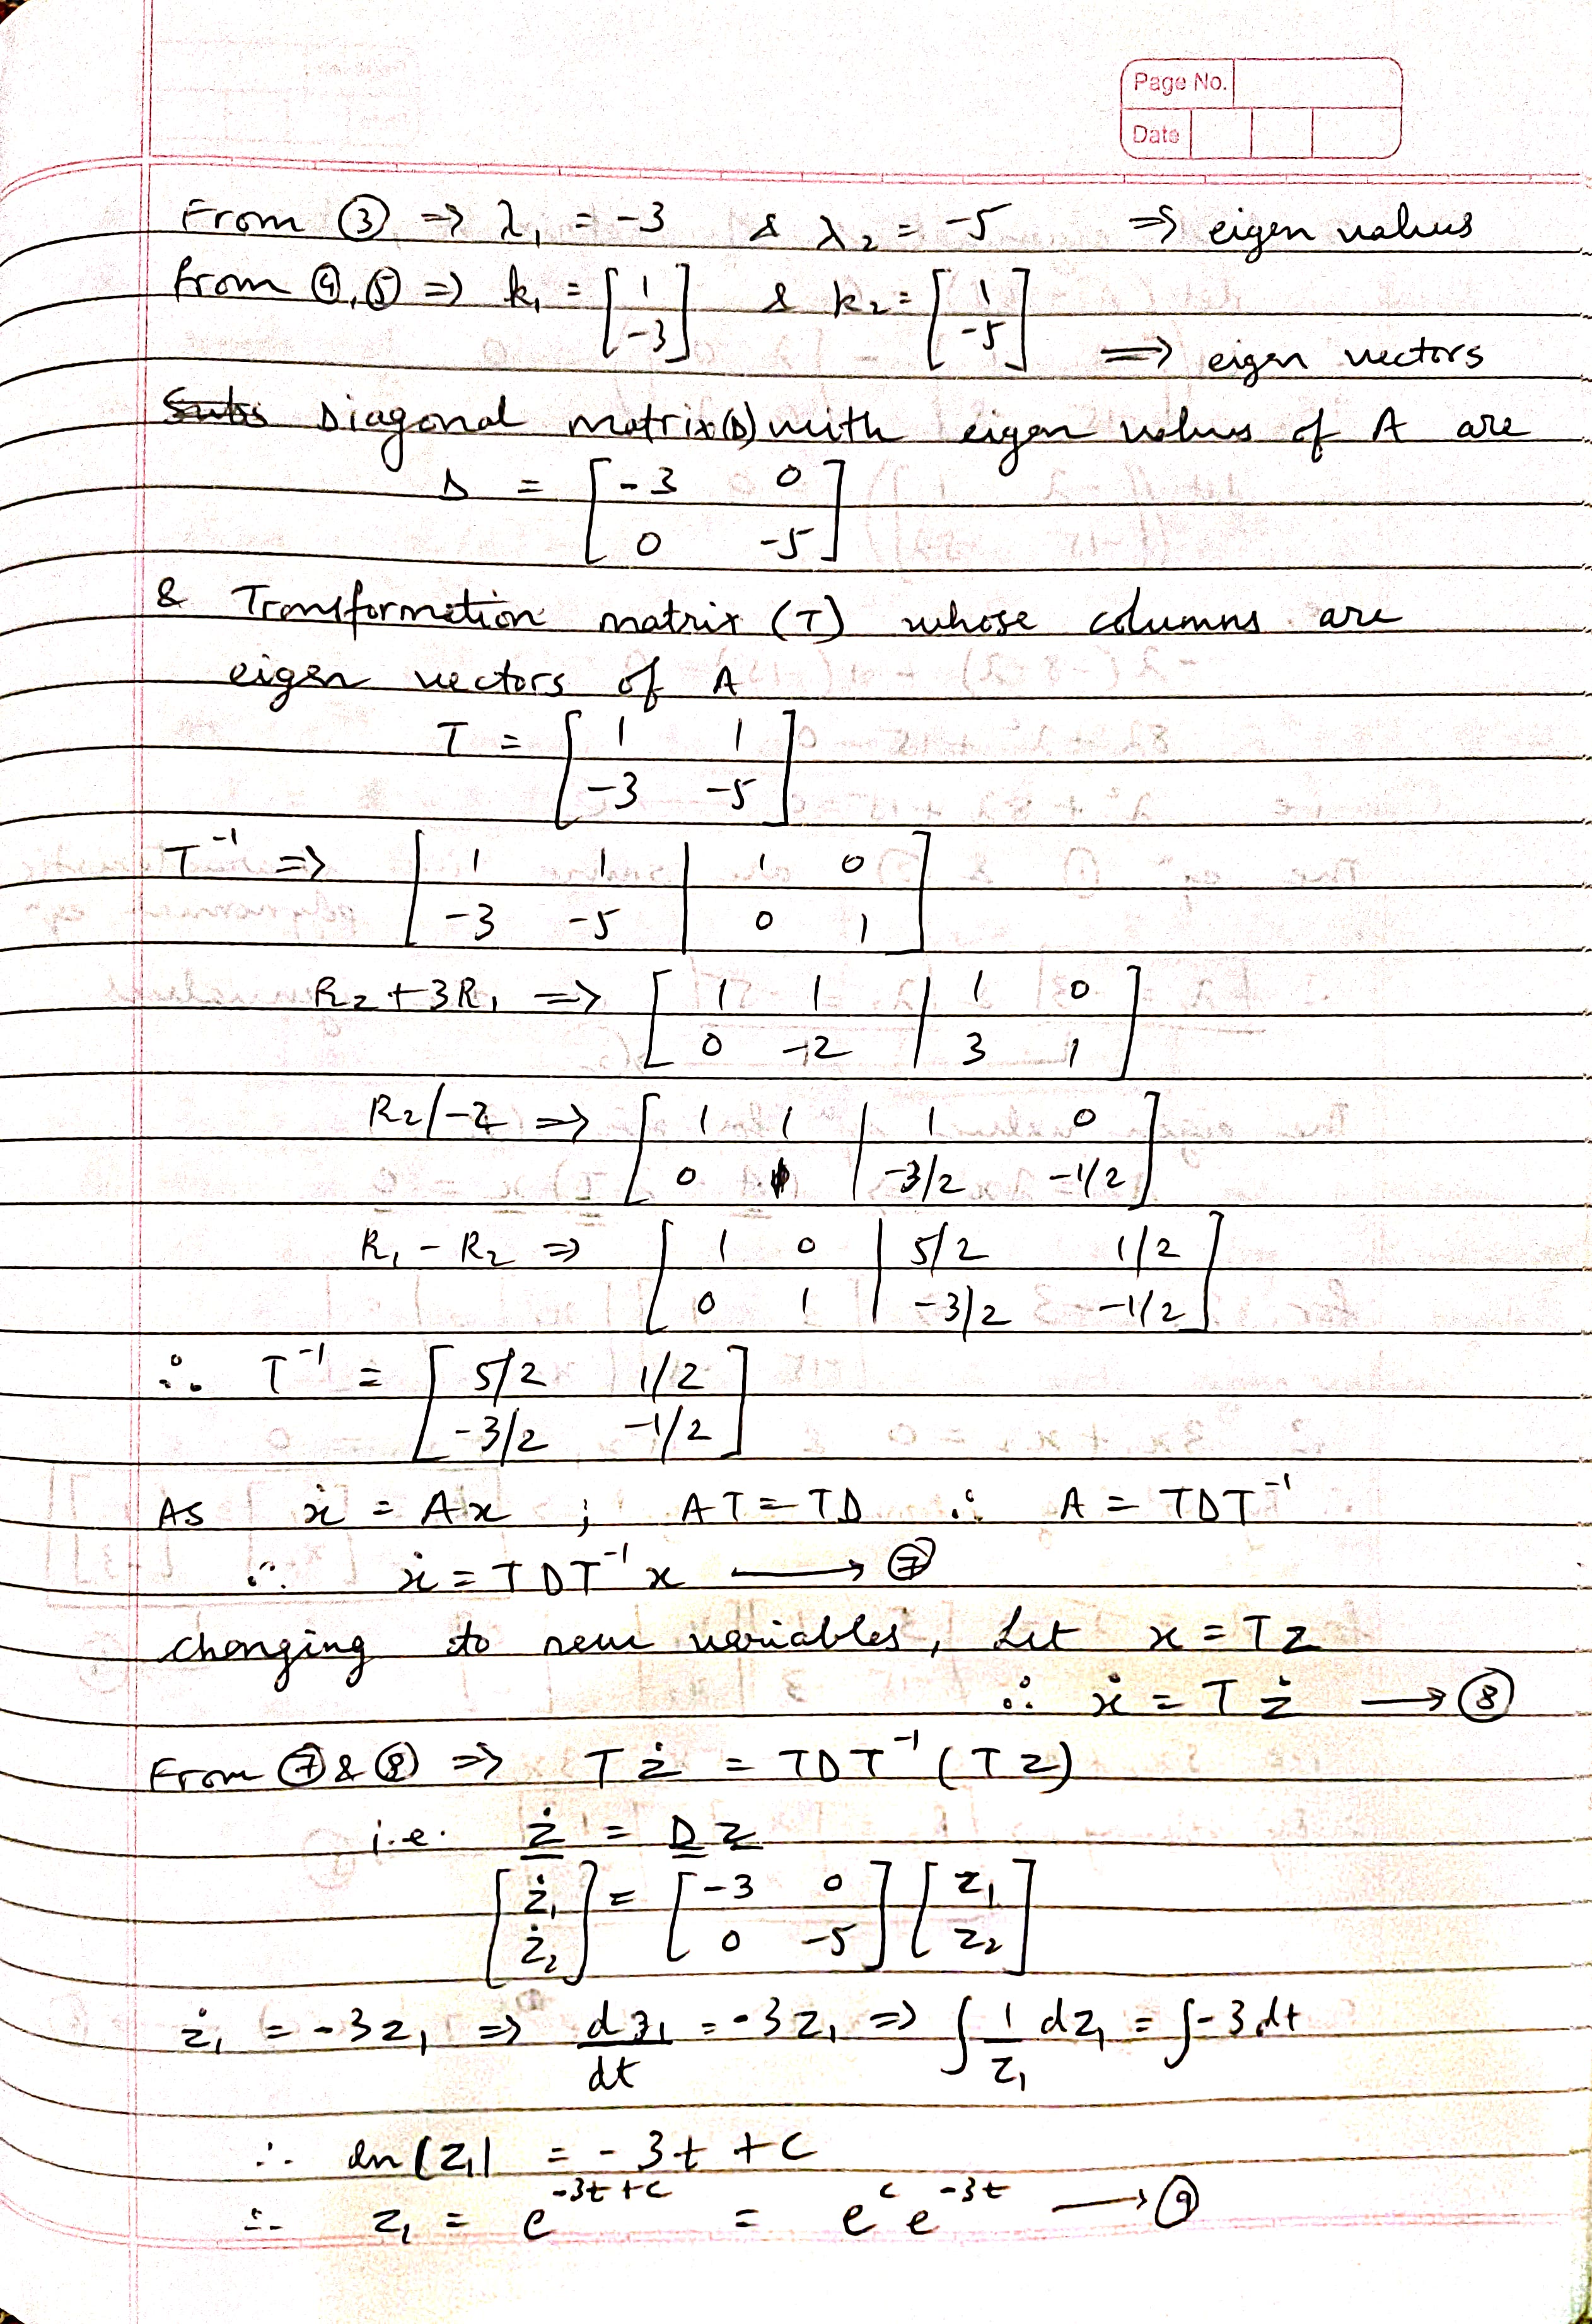 Page No.
Date
From ③ => λ₁ = -3 & λ₂ = -5 => eigen values
from ④,⑤ => k₁ = [1; -3] & k₂ = [1; -5]
=> eigen vectors
Diagonal matrix(D) with eigen values of A are
D = [-3 0; 0 -5]
& Transformation matrix (T) whose columns are
eigen vectors of A
T = [1 1; -3 -5]
T⁻¹ => [1 1 | 1 0; -3 -5 | 0 1]
R₂+3R₁ => [1 1 | 1 0; 0 -2 | 3 1]
R₂/-2 => [1 1 | 1 0; 0 1 | -3/2 -1/2]
R₁ - R₂ => [1 0 | 5/2 1/2; 0 1 | -3/2 -1/2]
∴ T⁻¹ = [5/2 1/2; -3/2 -1/2]
As ẋ = Ax ; AT = TD ∴ A = TDT⁻¹
∴ ẋ = TDT⁻¹x ⟶ ⑦
changing to new variables, Let x = Tz
∴ ẋ = Tż ⟶ ⑧
From ⑦ & ⑧ => Tż = TDT⁻¹(Tz)
i.e. ż = Dz
[ż₁; ż₂] = [-3 0; 0 -5] [z₁; z₂]
ż₁ = -3z₁ => dz₁/dt = -3z₁ => ∫ 1/z₁ dz₁ = ∫-3dt
∴ ln|z₁| = -3t + c
∴ z₁ = e^(-3t+c) = e^c e^(-3t) ⟶ ⑨